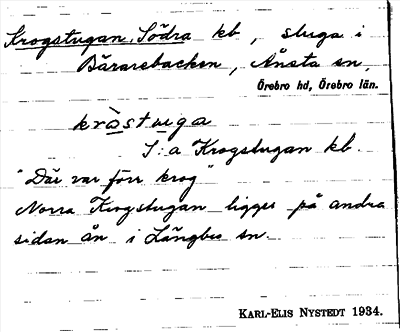 Krogstugan, Södra kb, stuga i
Bärarebacken, Ånsta sn,
Örebro hd, Örebro län.
kròstuga
S:a Krogstugan kb.
"Där var förr krog"
Norra Krogstugan ligger på andra
sidan ån i Längbro sn.
KARL-ELIS NYSTEDT 1934.